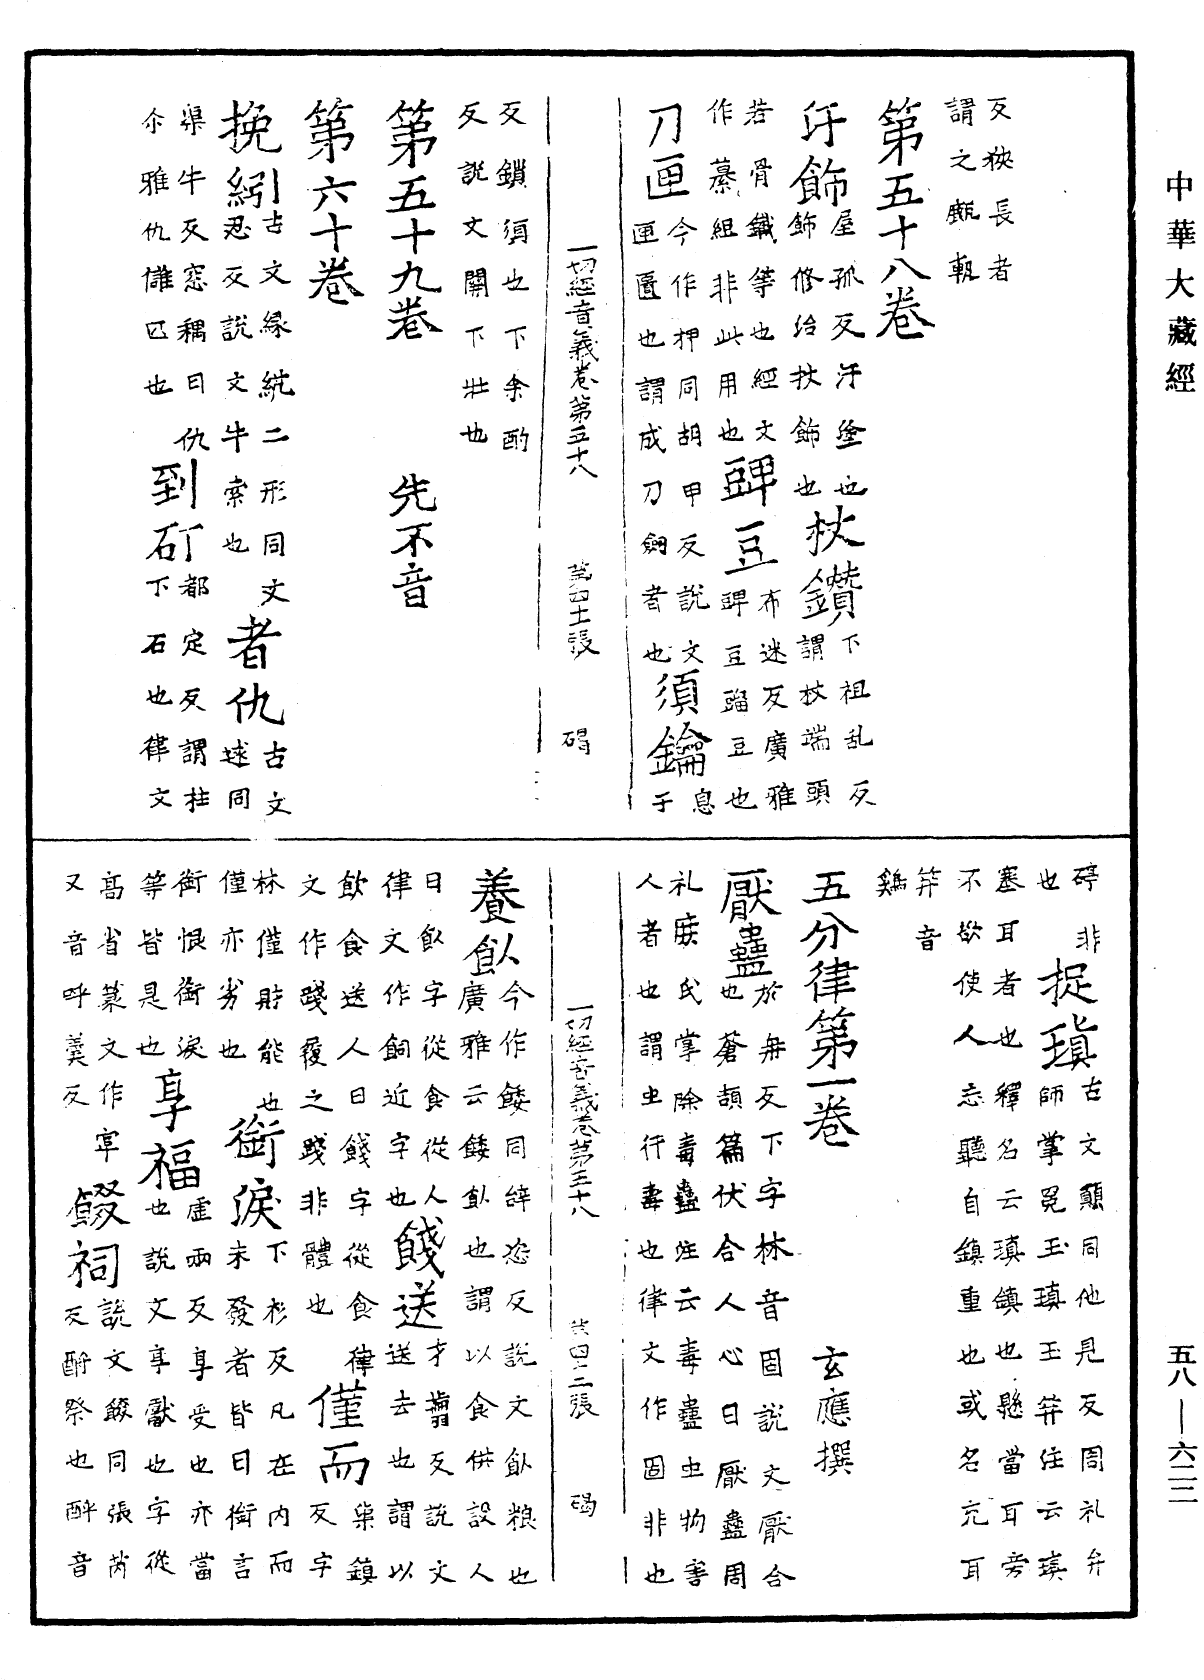 中華大藏經
五八—六二二
反狹長者
謂之瓾瓳
第五十八卷
汙飾屋孤反汙塗也
飾修治扶飾也
杖鑽下祖乱反
謂杖端頭
若骨鐵等也經文
作蕠組非此用也
豍豆布迷反廣雅
豍豆豍豆也
刀匣今作押同胡甲反說文
匣匱也謂成刀劒者也
須鑰息
于
一切經音義卷第五十八 第四十一張 碣
反鎖須也下余酌
反說文關下壯也
第五十九卷 先不音
第六十卷
挽紖古文綠統二形同文
忍反說文牛索也
者仇古文
逑同
渠牛反怨耦曰仇
尒雅仇讎匹也
到矴都定反謂柱
下石也律文
碠非
捉瑱古文䫜同他見反周礼弁
也師掌冕玉瑱玉笄注云瑱
塞耳者也釋名云瑱鎮也懸當耳旁
不欲使人忘聽自鎮重也或名充耳
笄音
鷄
五分律第一卷 玄應撰
厭蠱於冉反下字林音固說文厭合
也蒼頡篇伏合人心曰厭蠱周
礼庶氏掌除毒蠱注云毒蠱虫物害
人者也謂虫行毒也律文作固非也
一切經音義卷第五十八 第四十二張 碣
養飤今作餧同辝恣反說文飤粮也
廣雅云餧飤也謂以食供設人
曰飤字從食從人
律文作飼近字也
餞送才翦反說文
送去也謂以
飲食送人曰餞字從食律
文作踐覆之踐非體也
僅而渠鎮
反字
林僅財能也
僅亦劣也
銜淚下杉反凡在內而
未發者皆曰銜言
銜恨銜淚
等皆是也
享福虛兩反享受也亦當
也說文享獻也字從
高省篆文作亯
又音呼羹反
餟祠說文餟同張芮
反酹祭也酹音